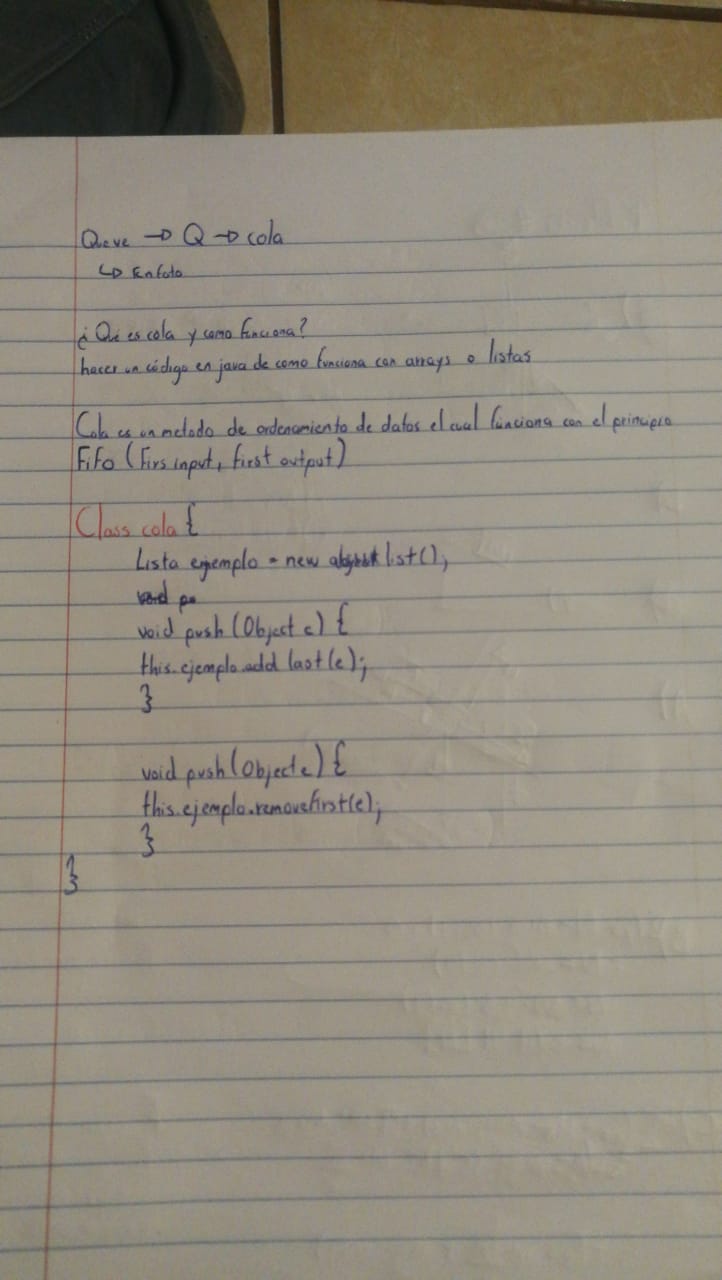 Queue → Q → cola
↳ En foto
¿Qué es cola y como funciona?
hacer un código en java de como funciona con arrays o listas
Cola es un metodo de ordenamiento de datos el cual funciona con el principio
FiFo (Firs input, first output)
Class cola {
Lista ejemplo = new list();
void push (Object e) {
this.ejemplo.add last(e);
}
void push (Object e) {
this.ejemplo.removefirst(e);
}
}